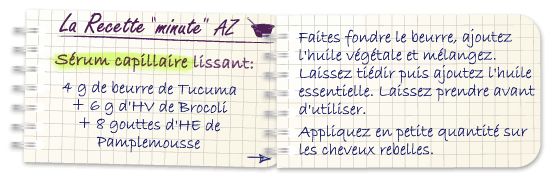 La Recette "minute" AZ
Sérum capillaire lissant:
4 g de beurre de Tucuma
+ 6 g d'HV de Brocoli
+ 8 gouttes d'HE de
Pamplemousse
Faites fondre le beurre, ajoutez
l'huile végétale et mélangez.
Laissez tiédir puis ajoutez l'huile
essentielle. Laissez prendre avant
d'utiliser.
Appliquez en petite quantité sur
les cheveux rebelles.